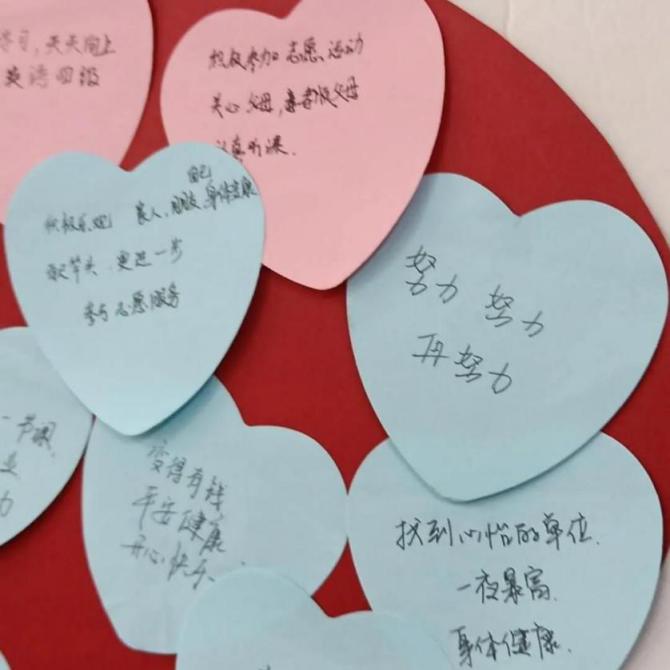 习，天天向上
英语四级
积极参加志愿活动
关心父母，孝敬父母
认真听课.
自己
积极乐观 家人，朋友，身体健康
百尺竿头，更进一步
参与志愿服务
努力 努力
再努力
一节课
力
变得有钱
平安健康
开心快乐.
找到心怡的单位.
一夜暴富.
身体健康.